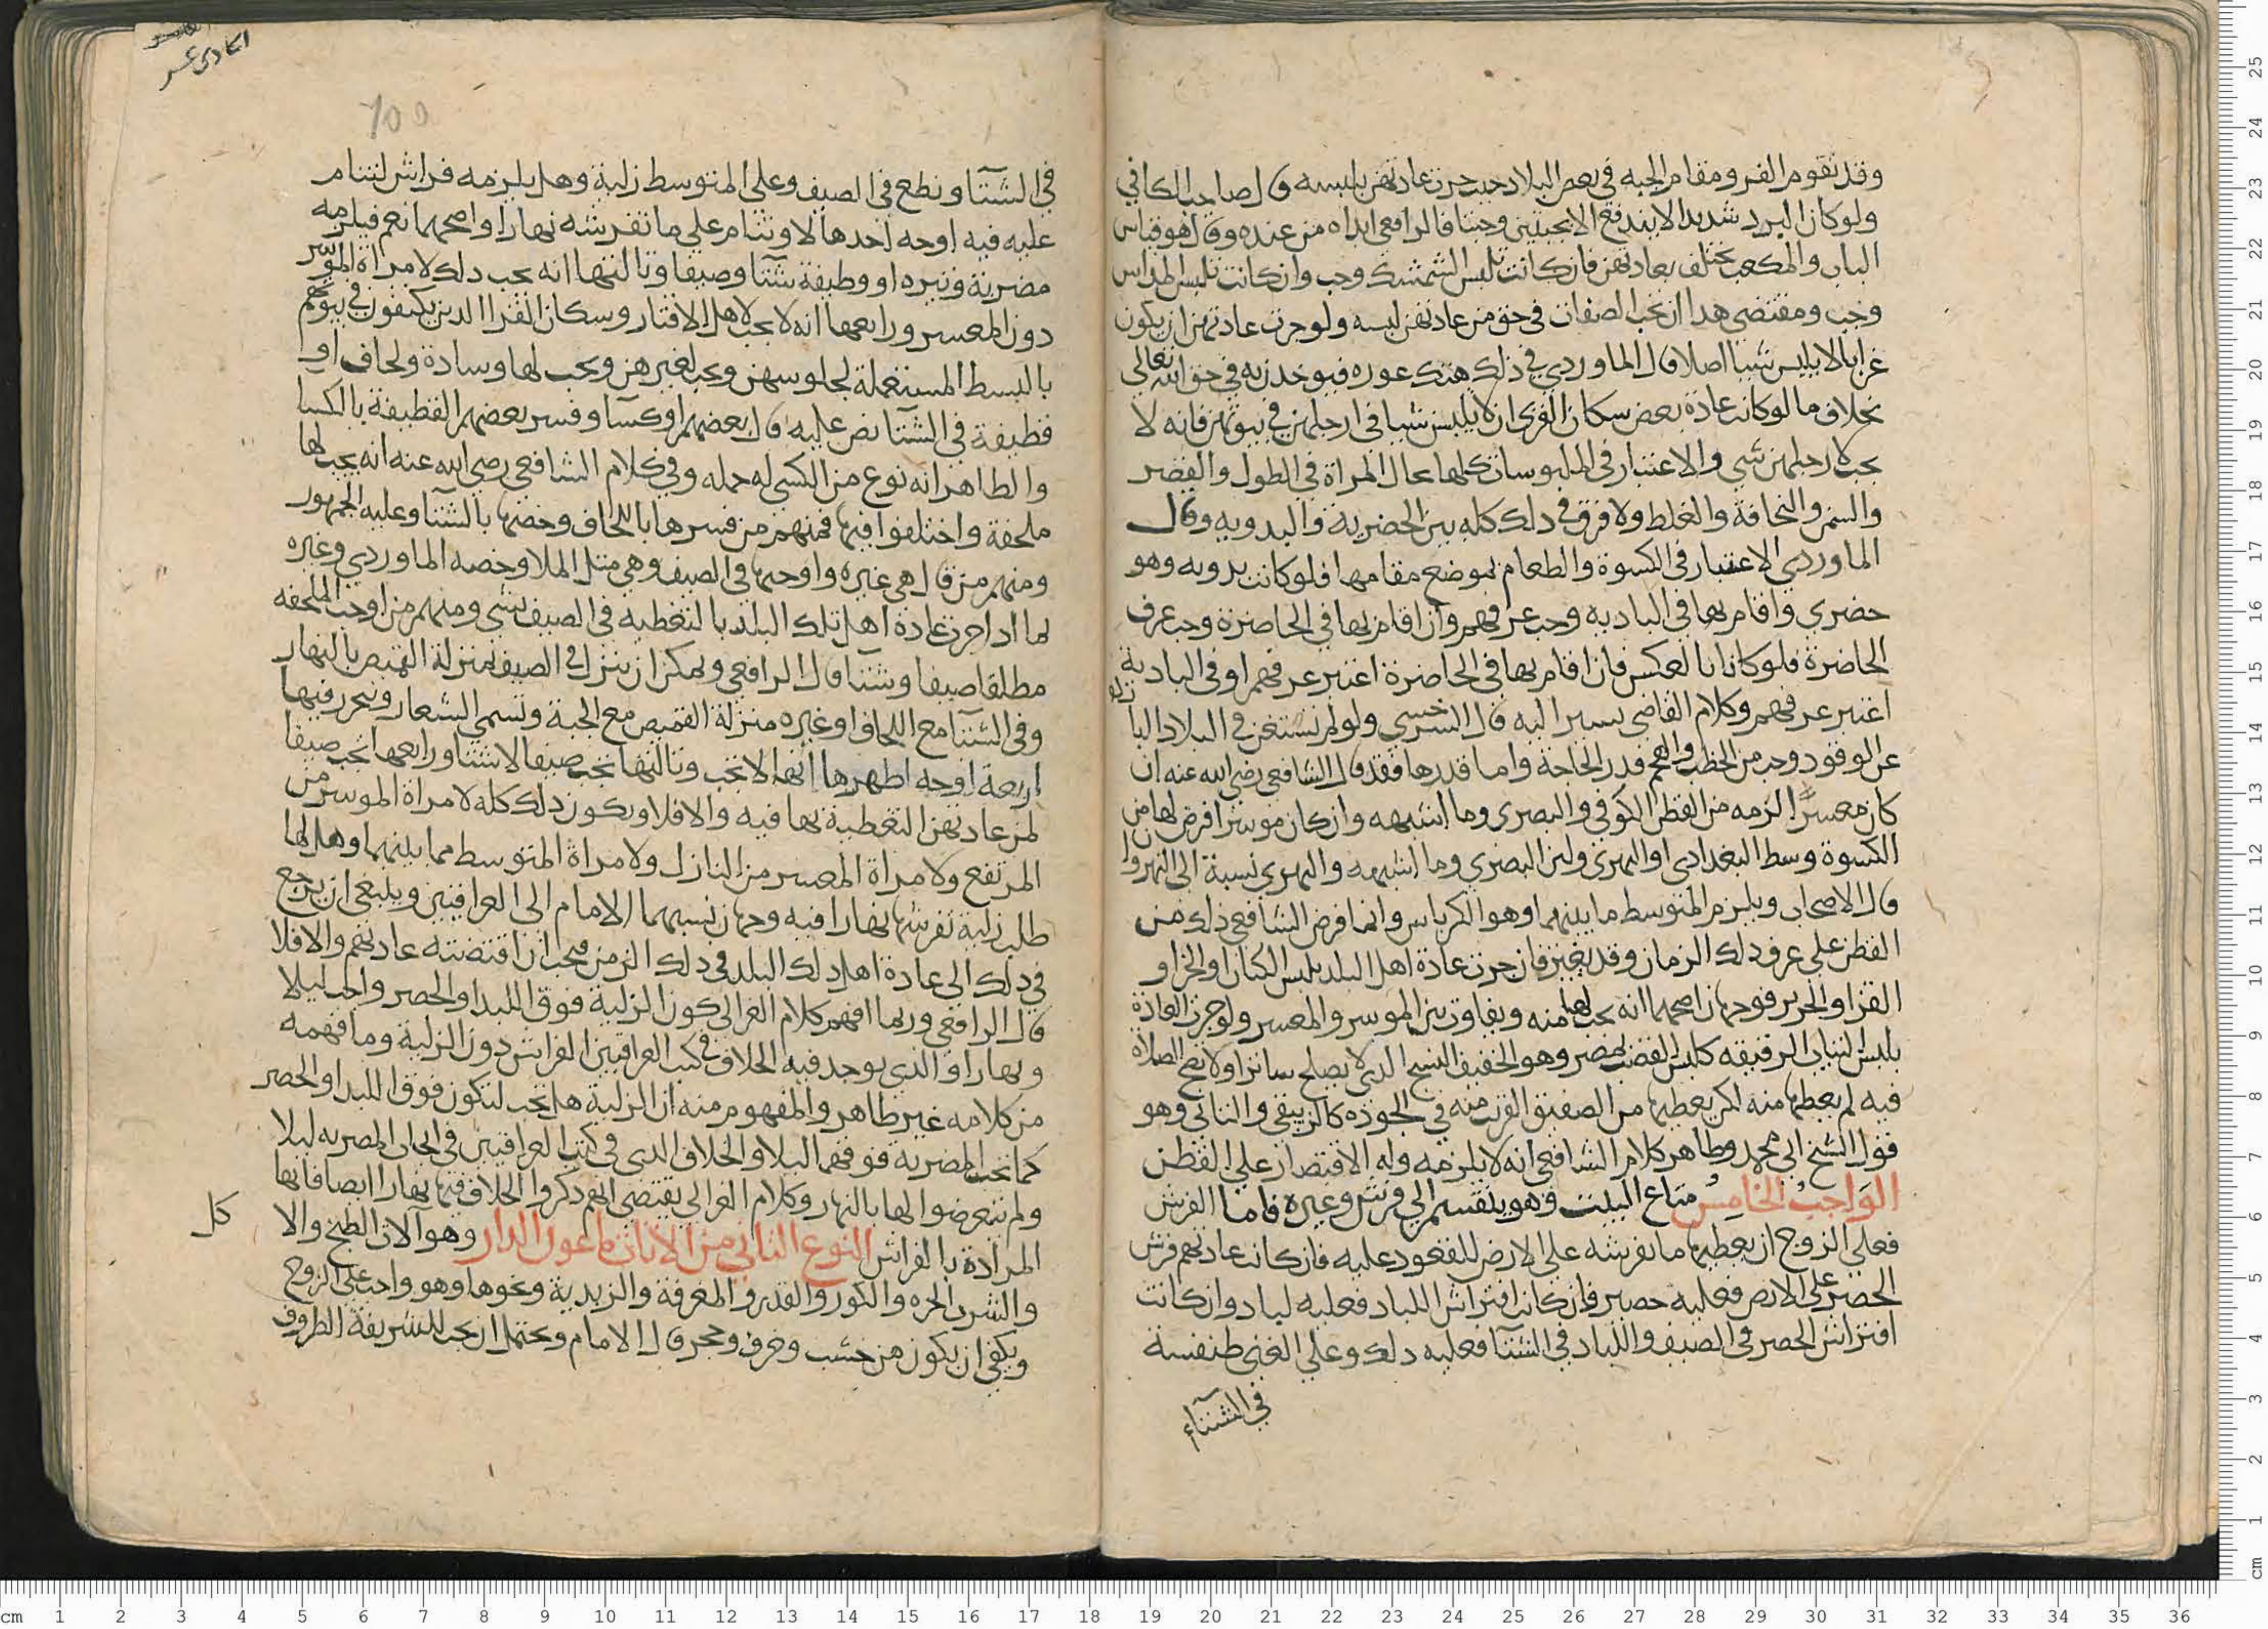 وقد يقوم الفرو مقام الجبه في بعض البلاد حيث جرت عادتهن بلبسه وقال صاحب الكافي
ولو كان البرد شديدا لا يندفع الا بجبتين وجبتا قال الرافعي ابداه من عنده وقال هو قياس
الباب والمكعب يختلف بعادتهن فان كانت تلبس الشمشك وجب وان كانت تلبس المداس
وجب ومقتضى هذا ان تجب الصفات في حق من عادتهن لبسه ولو جرت عادتهن ان يكون
عرايا لا يلبس شيا اصلا قال الماوردي في ذلك هتك عوره فيوخذن به في حق الله تعالى
بخلاف ما لو كانت عادة بعض سكان القرى ان لا يلبسن شيا في ارجلهن في بيوتهن فانه لا
يجب لارجلهن شي والاعتبار في الملبوسات كلها بحال المراة في الطول والقصر
والسمن والنحافة والغلظ ولا فرق في ذلك كله بين الحضرية والبدويه وقال
الماوردي الاعتبار في الكسوة والطعام بموضع مقامها فلو كانت بدويه وهو
حضري واقام بها في الباديه وجب عرفهم وان اقام بها في الحاضرة وجب عرف
الحاضرة فلو كانا بالعكس فان اقام بها في الحاضرة اعتبر عرفهم او في البادية
اعتبر عرفهم وكلام القاضي يسير اليه قال السرخسي ولو لم تستغن في البلاد البا ردة
عن الوقود وجب من الحطب والفحم قدر الحاجة واما قدرها فقد قال الشافعي رضي الله عنه ان
كان معسرا لزمه من القطن الكوفي والبصري وما اشبهه وان كان موسرا فرض لها من
الكسوة وسط البغدادي او الهروي ولين البصري وما اشبهه والهروي نسبة الى النهروان
قال الاصحاب ويلزم المتوسط ما بينهما وهو الكرباس وانما فرض الشافعي ذلك من
القطن على عرف ذلك الزمان وقد يتغير فان جرت عادة اهل البلد بلبس الكتان او الخز او
القز او الحرير فوجهان اصحهما انه يجب لها منه ويفاوت بين الموسر والمعسر ولو جرت العادة
بلبس الثياب الرقيقه كلبس القصب بمصر وهو الخفيف النسج الذي لا يصلح ساترا ولا تصح الصلاه
فيه لم يعطها منه لكن يعطيها من الصفيق القريب منه في الجوده كالزيبقي والثاني وهو
قول الشيخ ابي محمد وظاهر كلام الشافعي انه لا يلزمه وله الاقتصار على القطن
الواجب الخامس متاع البيت وهو ينقسم الى فرش وغيره فاما الفرش
فعلى الزوج ان يعطيها ما تفرشه على الارض للقعود عليه فان كانت عادتهم فرش
الحصر على الارض فعليه حصير فان كانت افتراش اللباد فعليه لباد وان كانت
افتراش الحصر في الصيف واللباد في الشتا فعليه ذلك وعلى الغني طنفسة
في الشتاء
الحادي عشر
100
في الشتا ونطع في الصيف وعلى المتوسط زلية وهل يلزمه فراش لتنام
عليه فيه اوجه احدها لا وتنام على ما تفرشه نهارا واصحهما نعم فيلزمه
مضربة وثيره او وطيفة شتا وصيفا وثالثها انه يجب ذلك لامراة الموسر
دون المعسر ورابعها انه لا يجب لاهل الاقتار وسكان القرا الذين يكتفون في بيوتهم
بالبسط المستعملة لجلوسهن ويجب لغيرهن ويجب لها وسادة ولحاف او
قطيفة في الشتا نص عليه قال بعضهم او كسا وفسر بعضهم القطيفة بالكسا
والظاهر انه نوع من الكسى له حمله وفي كلام الشافعي رضي الله عنه انه يجب لها
ملحفة واختلفوا فيها فمنهم من فسرها باللحاف وخصها بالشتا وعليه الجمهور
ومنهم من قال هي غيره واوجبها في الصيف وهي مثل الملا وخصه الماوردي وغيره
بما اذا جرت عادة اهل تلك البلد بالتغطيه في الصيف بشي ومنهم من اوجب الملحفه
مطلقا صيفا وشتا قال الرافعي ويمكن ان ينزل في الصيف منزلة القميص بالنهار
وفي الشتا مع اللحاف او غيره منزلة القميص مع الجبة وتسمى الشعار ويتحرر فيها
اربعة اوجه اظهرها انها لا تجب وثالثها تجب صيفا لا شتا ورابعها تجب صيفا
لمن عادتهن التغطية بها فيه والا فلا ويكون ذلك كله لامراة الموسر من
المرتفع ولامراة المعسر من النازل ولامراة المتوسط مما بينهما وهل لها
طلب زلية تفرشها نهارا فيه وجهان نسبهما الامام الى العراقيين وينبغي ان يرجع
في ذلك الى عادة اهل ذلك البلد في ذلك الزمن فيجب ان اقتضته عادتهم والا فلا
قال الرافعي وربما افهم كلام الغزالي كون الزلية فوق اللبد او الحصر واجب ليلا
ونهارا والذي يوجد فيه الخلاف في كتب العراقيين الفراش دون الزلية وما فهمه
من كلامه غير ظاهر والمفهوم منه ان الزلية هل تجب لتكون فوق اللبد او الحصر
كما تجب المضربه فوقهما ليلا والخلاف الذي في كتب العراقيين في ايجاب المضربه ليلا
ولم يتعرضوا لها بالنهار وكلام الغزالي يقتضي انهم ذكروا الخلاف فيها نهارا ايضا فانها
المرادة بالفراش النوع الثاني من الاثاث ماعون الدار وهو آلات الطبخ والا كل
والشرب الجره والكوز والقدر والمغرفة والزبدية ونحوها وهو واجب على الزوج
ويكفي ان يكون من خشب وخزف وحجر قال الامام ويحتمل ان يجب للشريفة الظروف